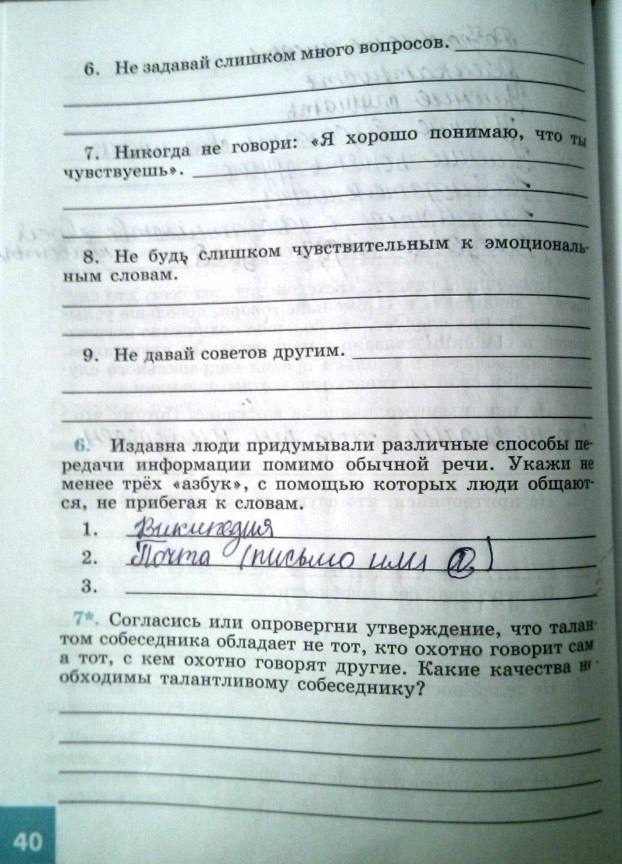 6. Не задавай слишком много вопросов.
7. Никогда не говори: «Я хорошо понимаю, что ты
чувствуешь».
8. Не будь слишком чувствительным к эмоциональ-
ным словам.
9. Не давай советов другим.
6. Издавна люди придумывали различные способы пе-
редачи информации помимо обычной речи. Укажи не
менее трёх «азбук», с помощью которых люди общают-
ся, не прибегая к словам.
1. Википедия
2. Почта (письмо или @)
3.
7*. Согласись или опровергни утверждение, что талан-
том собеседника обладает не тот, кто охотно говорит сам
а тот, с кем охотно говорят другие. Какие качества не
обходимы талантливому собеседнику?
40